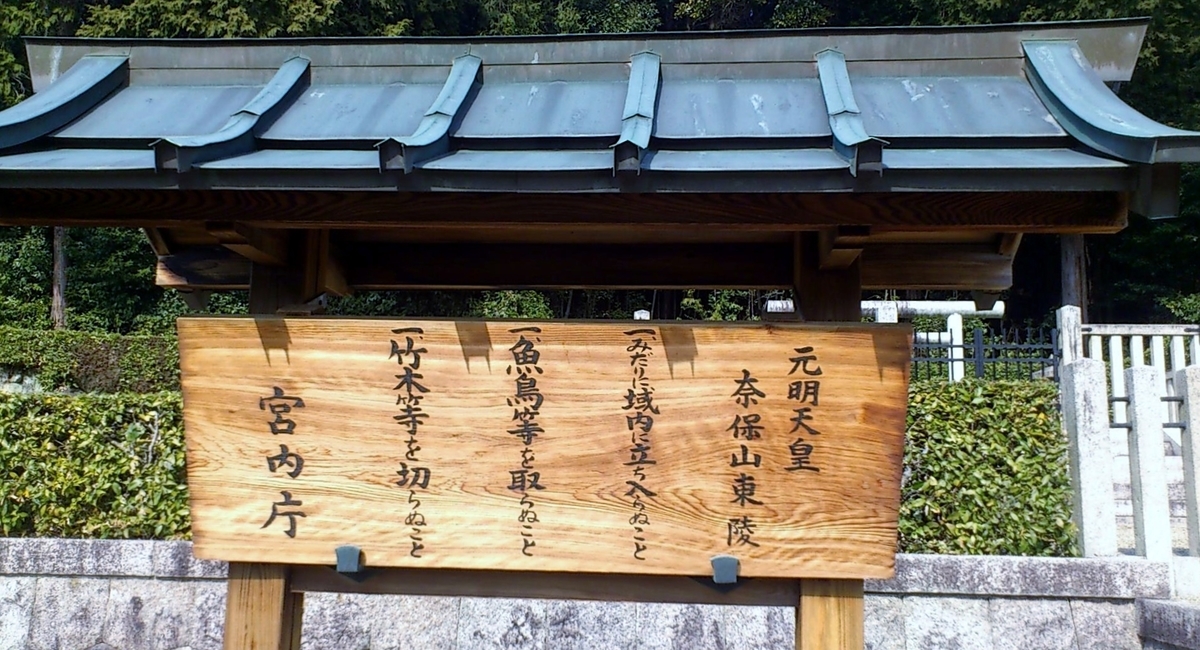 元明天皇
奈保山東陵
一、みだりに域内に立ち入らぬこと
一、魚鳥等を取らぬこと
一、竹木等を切らぬこと
宮内庁